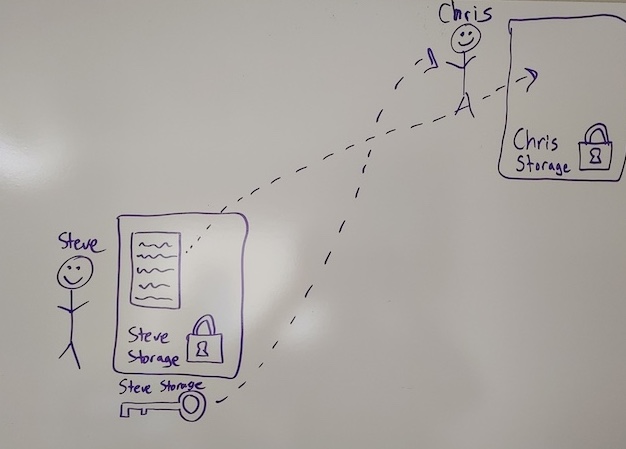 Chris
Chris
Storage
Steve
Steve
Storage
Steve Storage